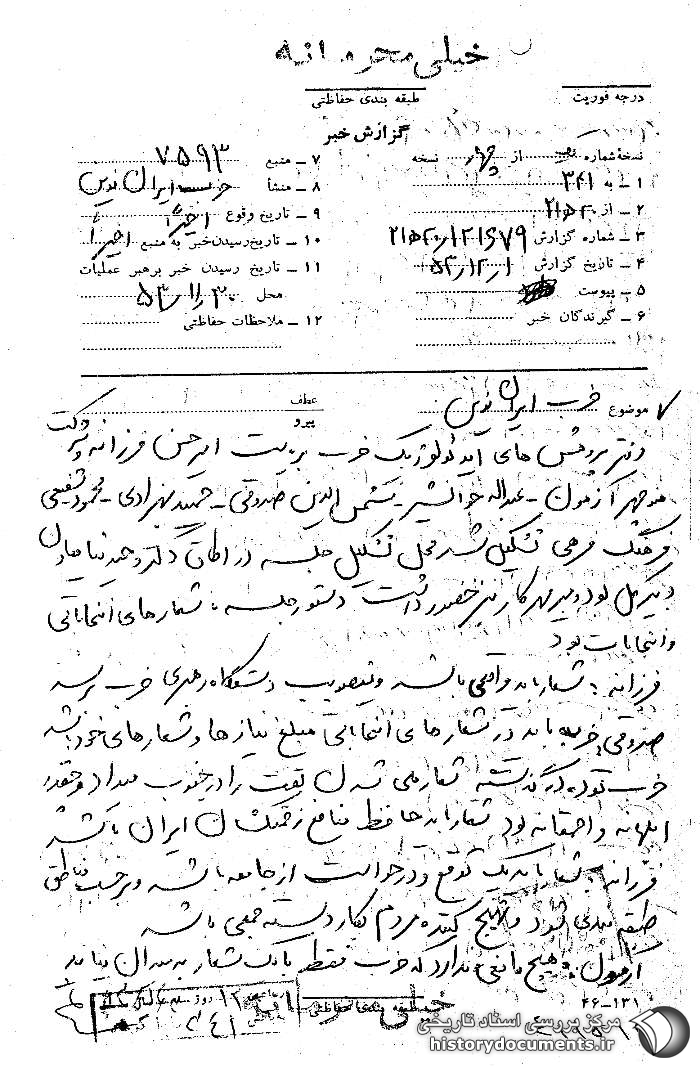 خیلی محرمانه
درجه فوریت
طبقه بندی حفاظتی
گزارش خبر
نسخهٔ شماره از چهار نسخه
۱ ـ به ۳۴۱
۲ ـ از ۲۰ه۲۱
۳ ـ شماره گزارش
۴ ـ تاریخ گزارش
۵ ـ پیوست
۶ ـ گیرندگان خبر
۷ ـ منبع ۷۵۹۳
۸ ـ منشأ حزب ایران نوین
۹ ـ تاریخ وقوع اخیراً
۱۰ ـ تاریخ رسیدن خبر به منبع اخیراً
۱۱ ـ تاریخ رسیدن خبر برهبر عملیات
محل ۳۰/۱۱/۵۳
۱۲ ـ ملاحظات حفاظتی
موضوع حزب ایران نوین
عطف
پیرو
دفتر پژوهش های ایدئولوژیک حزب بریاست امیرحسن فرزانه و شرکت
منوچهر آزمون - عبداله جوانشیر - شمس الدین صدوقی - حمید بهزادی - محمود شفیعی
فرهنگ فرهی تشکیل شد محل تشکیل جلسه در اطاق دکتر وحیدنیا معاون
دبیرکل بود و دبیر مهرکار نیز حضور داشت دستور جلسه شعارهای انتخاباتی
و انتخابات بود
فرزانه : شعار باید واقعی باشد و بتصویب دستگاه رهبری حزب برسد
صدوقی: حزب باید در شعارهای انتخاباتی مبلغ نیازها و شعارهای خود باشد
حزب توده در گذشته شعار ملی شدن نفت را در جنوب میداد و چقدر
ابلهانه و احمقانه بود شعار باید حافظ منافع زحمتکشان ایران باشد
فرزانه : شعار باید یک توقع و درخواست از جامعه باشد و برحسب مناطق
طبقه بندی شود و بسیج کننده مردم بکار دسته جمعی باشد
آزمون : هیچ مانعی ندارد که حزب فقط با یک شعار به میدان بیاید
خیلی محرمانه
طبقه بندی حفاظتی
۱۳۱-۴۶
مرکز بررسی اسناد تاریخی
historydocuments.ir